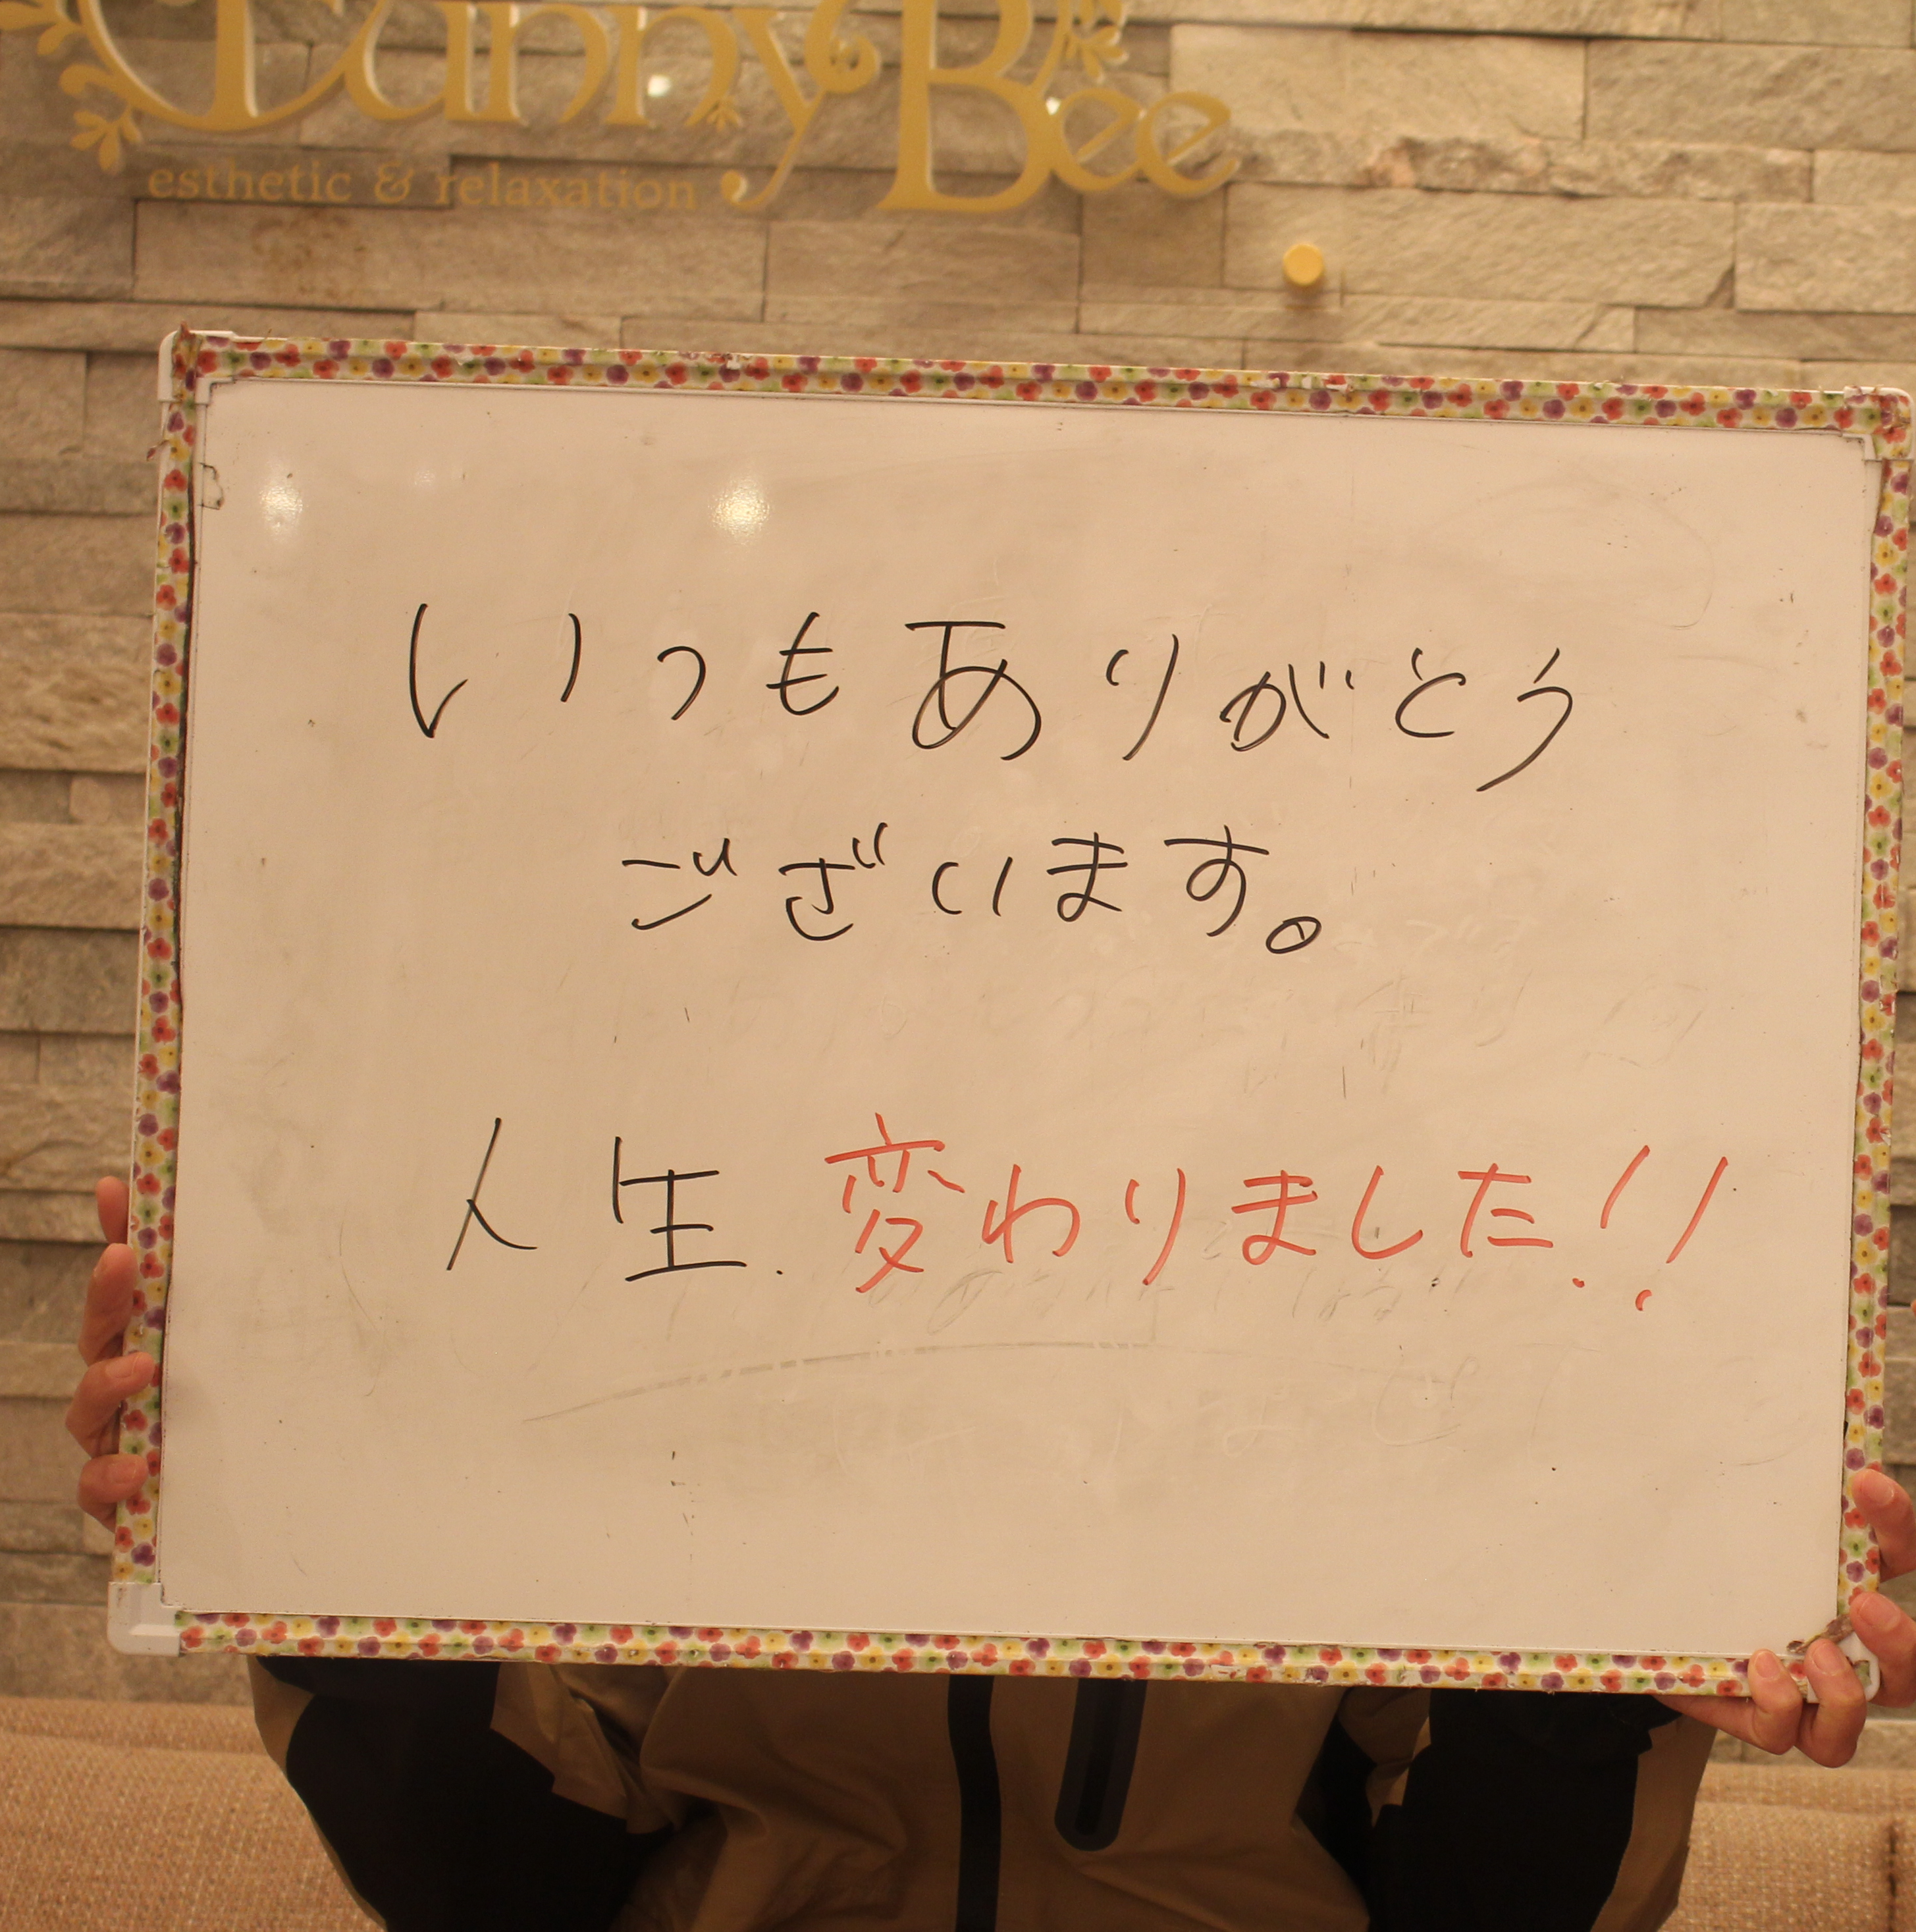 Bee
esthetic & relaxation
いつもありがとう
ございます。
人生.変わりました!!